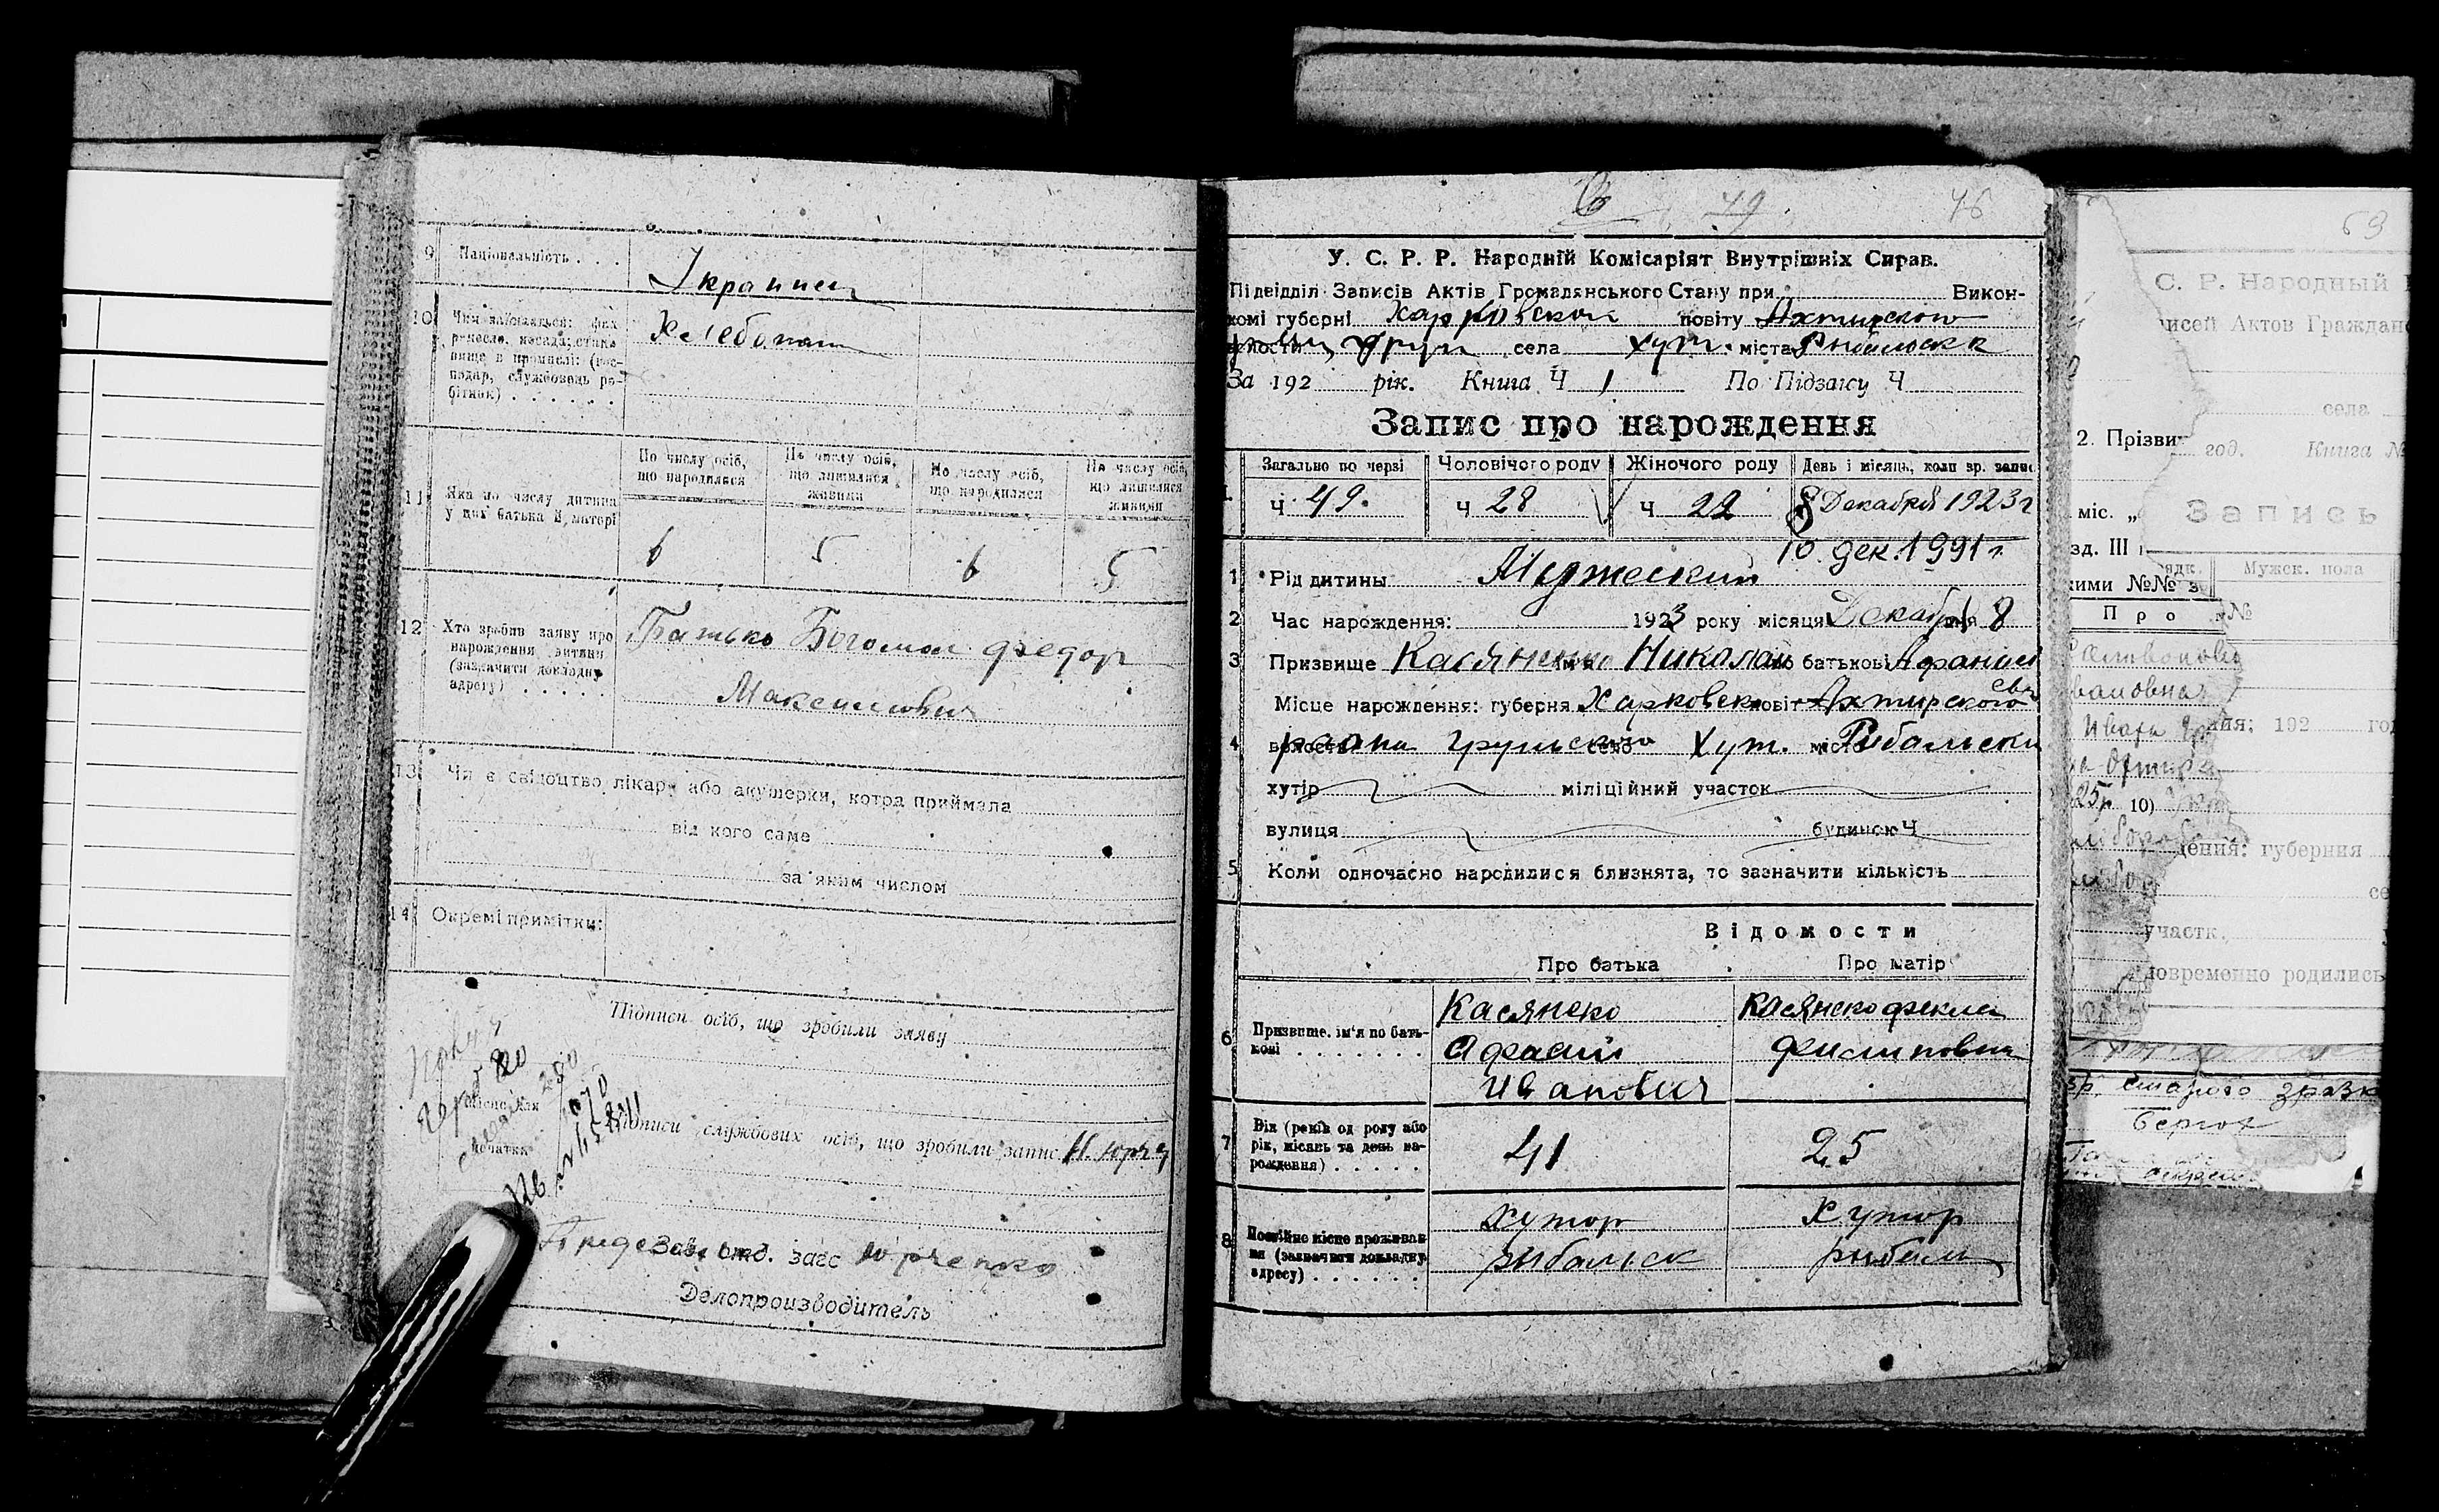 9 Національність . . .
Украинец
10 Чим займається: фах
ремесло, посада, стано-
вище в промислі: (гос-
подар, службовець ро-
бітник) . . . . . .
Хлебопаш
11 Яка по числу дитина
у цих батька й матері
По числу осіб,
що народилися
По числу осіб,
що лишилися
живими
По числу осіб,
що народилися
По числу осіб,
що лишилися
живими
6 5 6 5
12 Хто зробив заяву про
нарождення дитини
(зазначити докладну
адресу) . . . . .
Батько Богомол Федор
Максимович
13 Чи є свідоцтво лікаря або акушерки, котра приймала
від кого саме
за яким числом
14 Окремі примітки:
Підписи осіб, що зробили заяву
Підписи службових осіб, що зробили запис Н. Юрч
Зав. отд. загс Юрченко
Делопроизводитель
49. 46
У. С. Р. Р. Народній Комісаріят Внутрішніх Справ.
Підвідділ Записів Актів Громадянського Стану при Викон-
комі губерні Харковской повіту Ахтирского
волости Грун села хут. міста Рибальска
За 192 рік. Книга Ч 1 По Підзагсу Ч
Запис про нарождення
Загально по черзі Чоловічого роду Жіночого роду День і місяць, коли зр. запис
Ч 49. Ч 28 Ч 22 8 Декабря 1923 г
10 дек. 1991 г
1 Рід дитини Мужеский
2 Час нарождення: 1923 року місяця Декабря дня 8
3 Призвище Касяненко ім'я Николай по батькові Афанасі
еви
Місце нарождення: губерня Харковск повіт Ахтирского
4 волость района Грунского село Хут. місто Рибальски
хутір міліційний участок
вулиця будинок Ч
5 Коли одночасно народилися близнята, то зазначити кількість
Відомости
Про батька Про матір
6 Призвище, ім'я по бать-
кові . . . . . . .
Касянеко
Афаасий
Иванович
Касянеко Фекла
Филиповна
7 Вік (років од роду або
рік, місяць та день на-
рождення) . . . . .
41 25
8 Постійне місце проживан-
ня (зазначити докладну
адресу) . . . . . .
Хутор
рибальск
Хутор
рибаль
63
С. Р. Народный
писей Актов Граждан
села
2. Прізви
год. Книга №
міс. „
Запись
зд. III
Мужск. пола
кими №№ з
Про
№
ния: 192 го
25р 10)
дения: губерния
се
участк.
новременно родились
старого зразк